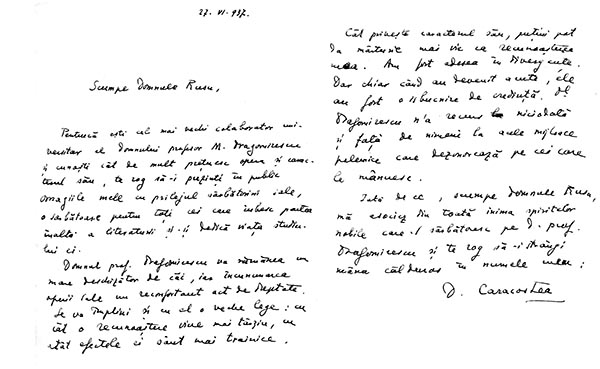 27.VI.937.
Scumpe Domnule Rusu,
Pentrucă ești cel mai vechi colaborator uni-
versitar al Domnului profesor M. Dragomirescu
și cunoști cât de mult prețuesc opera și carac-
terul său, te rog să-i prezinți în public
omagiile mele cu prilejul sărbătoririi sale,
o sărbătoare pentru toți cei care iubesc partea
înaltă a literaturii și-și dedică viața studiu-
lui ei.
Domnul prof. Dragomirescu va rămânea un
mare deschizător de căi, iar încununarea
operii sale un reconfortant act de dreptate.
Se va împlini și cu el o veche lege: cu
cât o recunoaștere vine mai târziu, cu
atât efectele ei sânt mai trainice.
Cât privește caracterul său, puțini pot
da mărturie mai vie ca recunoașterea
mea. Am fost adesea în divergențe.
Dar chiar când au devenit acute, ele
au fost o izbucnire de credință. Dl
Dragomirescu n'a recurs niciodată
și față de nimeni la acele mijloace
polemice care dezonorează pe cei care
le mânuesc.
Iată de ce, scumpe domnule Rusu,
mă asociez din toată inima spiritelor
nobile care-l sărbătoresc pe D. prof.
Dragomirescu și te rog să-i strângi
mâna călduros în numele meu:
D. Caracostea